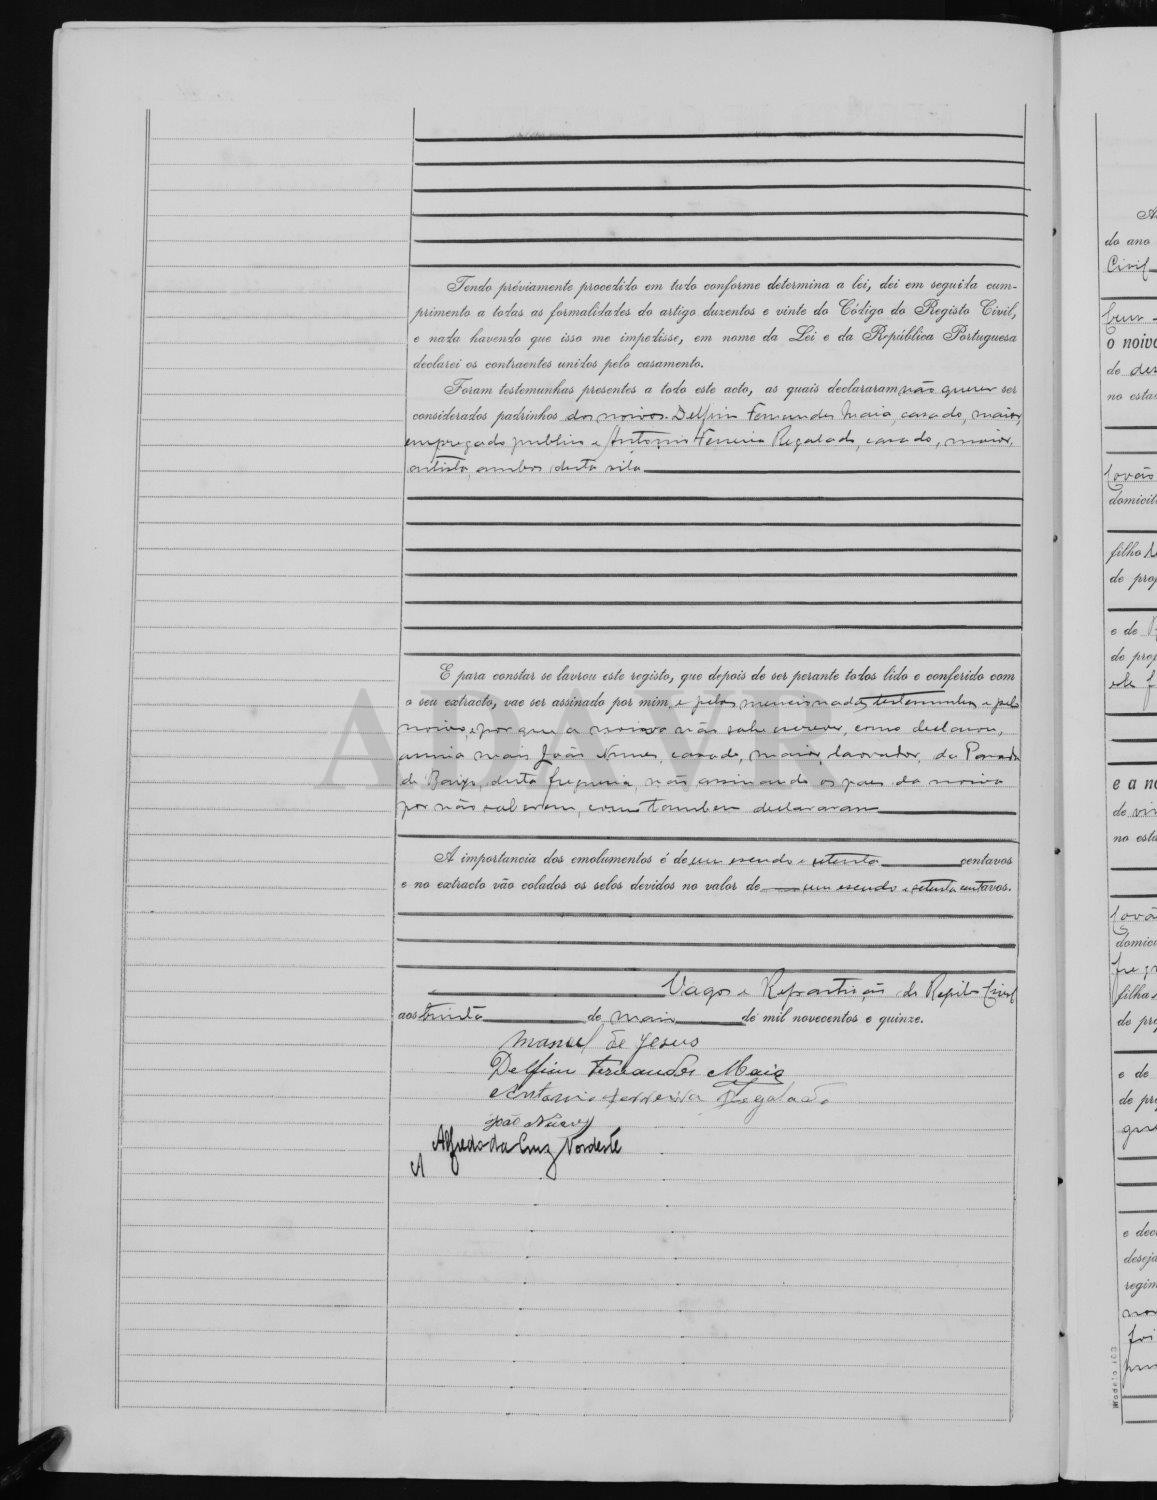 Tendo préviamente procedido em tudo conforme determina a lei, dei em seguida cum-
primento a todas as formalidades do artigo duzentos e vinte do Código do Registo Civil,
e nada havendo que isso me impedisse, em nome da Lei e da República Portuguesa
declarei os contraentes unidos pelo casamento.
Foram testemunhas presentes a todo este acto, as quais declararam não querer ser
considerados padrinhos dos noivos. Delfim Fernandes Maia, casado, maior,
empregado publico e Antonio Ferreira Regalado, casado, maior,
artista, ambos desta vila
E para constar se lavrou este registo, que depois de ser perante todos lido e conferido com
o seu extracto, vae ser assinado por mim, e pelas mencionadas testemunhas e pelo
noivo, e por que a noiva não sabe escrever, como declarou,
assina mais João Nunes, casado, maior, lavrador, da Parada
de Baixo, desta freguesia, não assinando os paes da noiva
por não saberem, como tambem declararam
A importancia dos emolumentos é de um escudo e setenta centavos
e no extracto vão colados os selos devidos no valor de um escudo e setenta centavos.
Vagos e Repartição do Registo Civil
aos trinta de maio de mil novecentos e quinze.
Manuel de Jesus
Delfim Fernandes Maia
Antonio Ferreira Regalado
João Nunes
Alfredo da Cruz Nordeste
A
ADAVR
do ano
Civil
o noivo
no esta
domicil
filho
de prop
e de
de prop
e a no
no esta
domici
filha
de pro
e de
de pro
que
e decl
deseja
regim
foi
Modelo 103